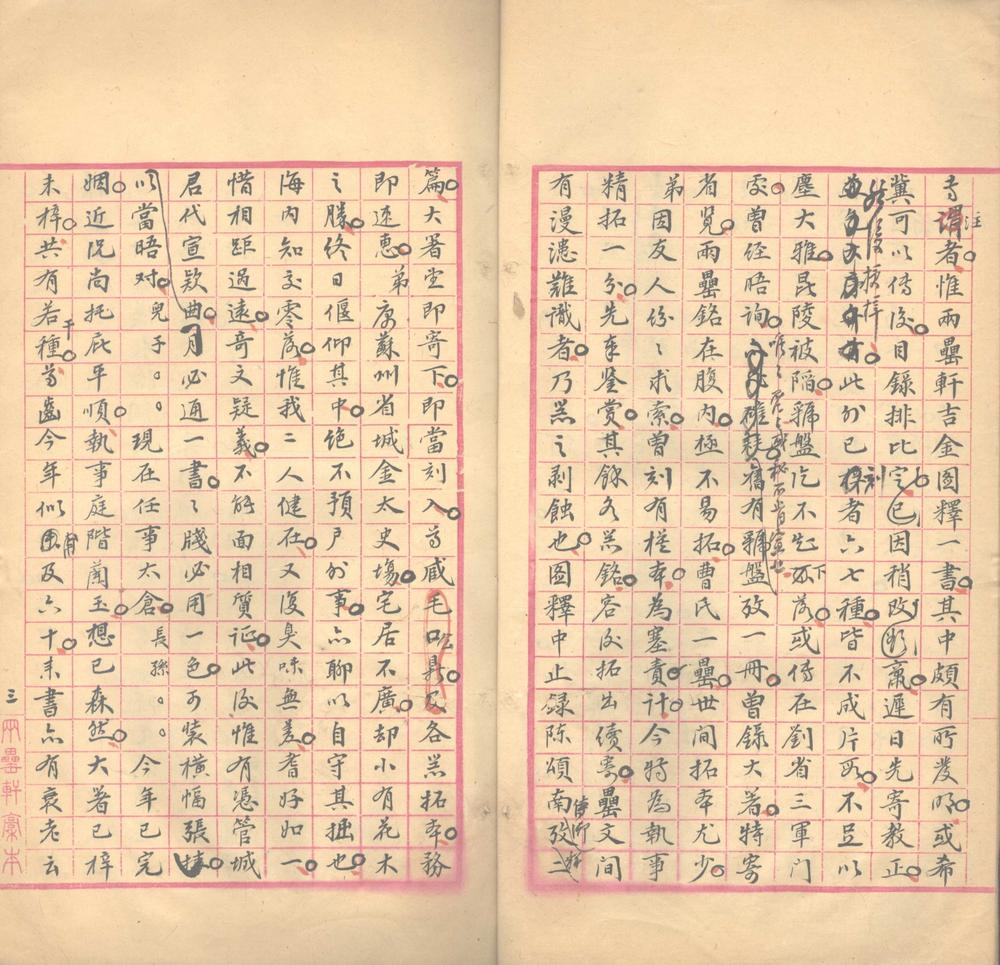 者惟兩罍軒吉金圖釋一書其中頗有所發明或希
冀可以傳後目錄排比定已因稍改遲日先寄教正
此外已刻者六七種皆不成片段不足以
塵大雅昆陵被陷虢盤訖不知下落或傳在劉省三軍門
處曾經晤詢舊有虢盤攷一冊曾錄大著特寄
省覽兩罍銘在腹內極不易拓曹氏一罍世間拓本尤少
弟因友人紛〻求索曾刻有木本為塞責計今特為執事
精拓一分先奉鑒賞其餘各器銘容後拓出續寄罍文間
有漫漶難識者乃器之剥蝕也圖釋中止錄陳頌南攷
篇大著坐即寄下即當刻入尊臧毛口鼎及各器拓本務
即速惠弟寓蘇州省城金太史場宅居不廣却小有花木
之勝終日偃仰其中絶不預戶外事亦聊以自守其拙也
海內知交零落惟我二人健在又復臭味無差耆好如一
惜相距過遠奇文疑義不能面相質證此後惟有憑管城
君代宣款曲月必通一書〻牋必用一色可裝橫幅張
以當晤对兒子。。現在任事太倉長孫。。今年已完
姻近況尚托庇平順執事庭階蘭玉想已森然大著已梓
未梓共有若干種尊齒今年似及六十來書亦有衰老云
三
兩罍軒稾本